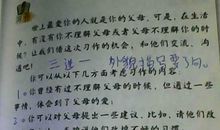 世上最爱你的人就是你的父母,可是,在生活
中,有没有你不理解父母或者父母不理解你的时
候?让我们借这次习作的机会,和他们交流、沟
通吧!
三选一
你可以从以下几方面考虑习作的内容。
1.你曾经有过不理解父母的时候,但通过一些
事情,体会到了父母的爱;
2.你可以对父母提出一些建议,比如,请他们改